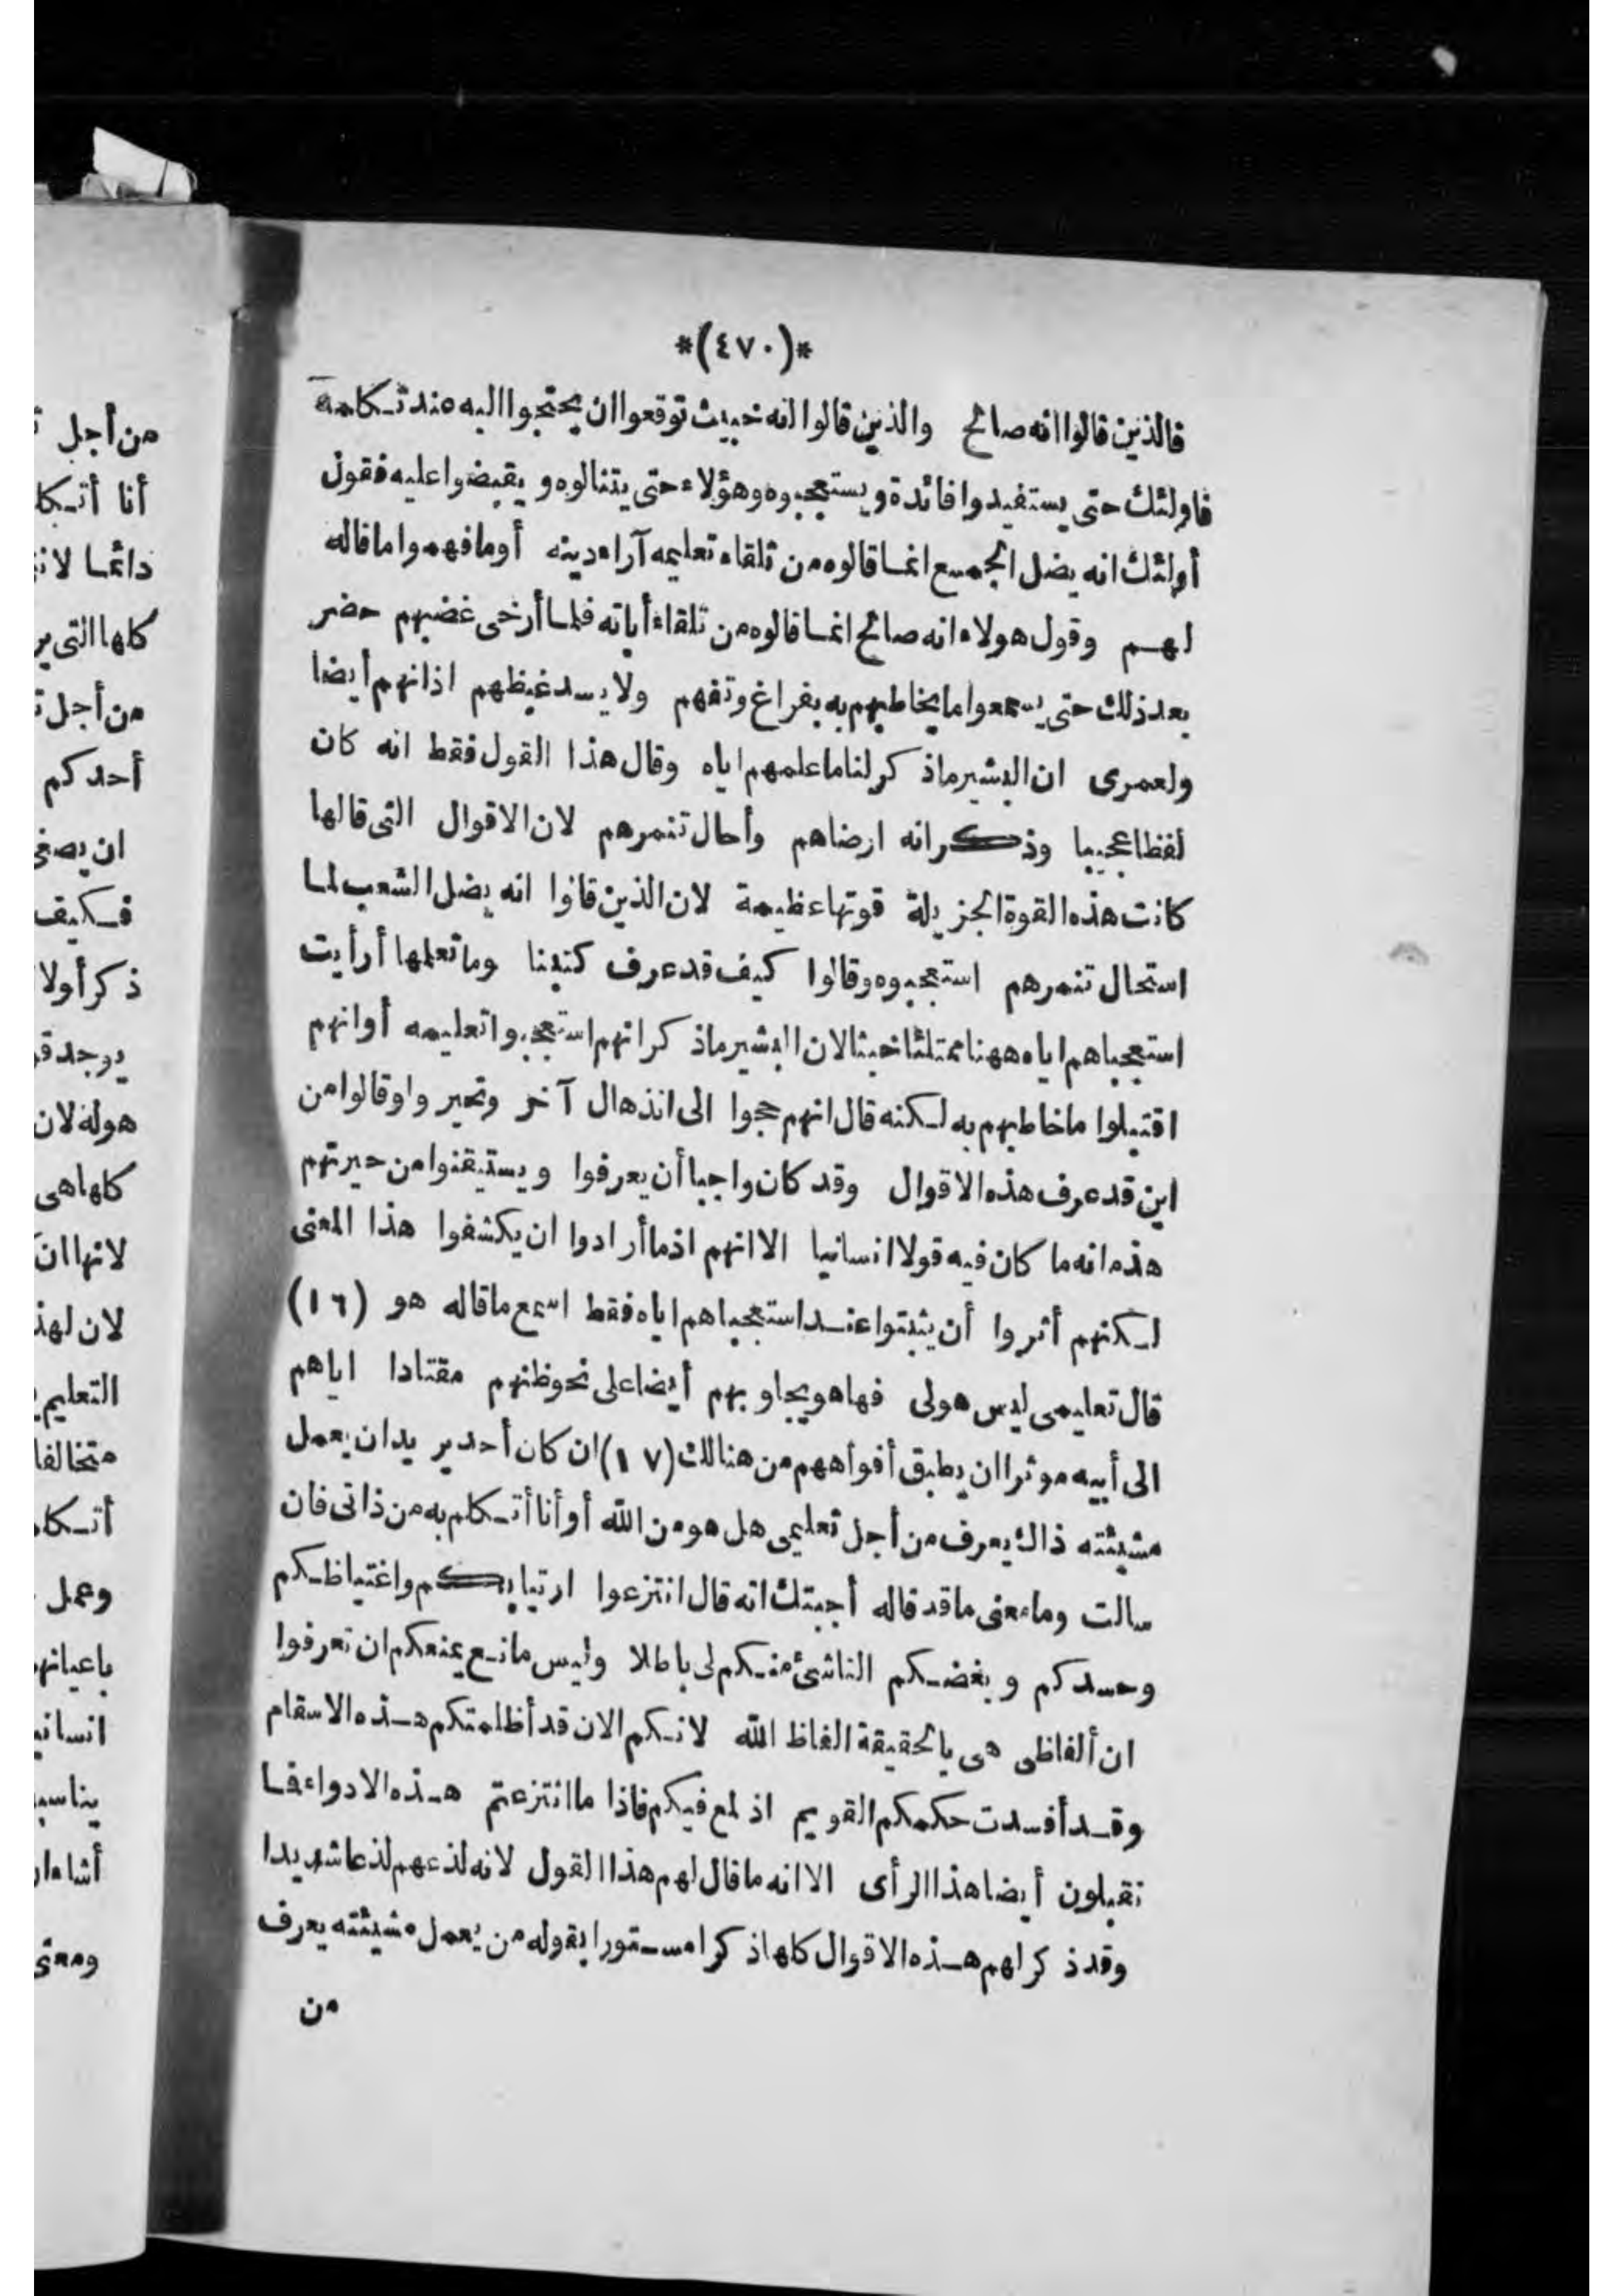 *(٤٧٠)*
فالذين قالوا انه صالح والذين قالوا انه خبيث توقعوا ان يحتجوا اليه عند تكلمه
فاولئك حتى يستفيدوا فائدة ويستعجبوه وهؤلاء حتى يتنالوه ويقبضوا عليه فقول
أولئك انه يضل الجمع انما قالوه من تلقاء تعليمه آراء دينه أو ما فهموا ما قاله
لهم وقول هولاء انه صالح انما قالوه من تلقاء أياته فلما أرخى غضبهم حضر
بعد ذلك حتى يسمعوا ما يخاطبهم به بفراغ وتفهم ولا يسد غيظهم اذانهم أيضا
ولعمرى ان البشير ماذكر لنا ما علمهم اياه وقال هذا القول فقط انه كان
لفظا عجيبا وذكر انه ارضاهم وأحال تنمرهم لان الاقوال التى قالها
كانت هذه القوة الجزيلة قوتها عظيمة لان الذين قالوا انه يضل الشعب لما
استحال تنمرهم استعجبوه وقالوا كيف قد عرف كتبنا وما تعلمها أرأيت
استعجباهم اياه ههنا ممتلئا خبثا لان البشير ماذكر انهم استعجبوا تعليمه أو انهم
اقتبلوا ما خاطبهم به لكنه قال انهم حجوا الى انذهال آخر وتحير واوقالوا من
اين قد عرف هذه الاقوال وقد كان واجبا أن يعرفوا ويستيقنوا من حيرتهم
هذه انه ما كان فيه قولا انسانيا الا انهم اذ ما أرادوا ان يكشفوا هذا المعنى
لكنهم أثروا أن يثبتوا عند استعجباهم اياه فقط اسمع ما قاله هو (١٦)
قال تعليمى ليس هولى فها هو يجاوبهم أيضا على نحو ظنهم مقتادا اياهم
الى أبيه موثرا ان يطبق أفواههم من هنالك (١٧) ان كان أحد يريد ان يعمل
مشيئته ذاك يعرف من أجل تعليمى هل هو من الله أو أنا أتكلم به من ذاتى فان
سالت وما معنى ما قد قاله أجبتك انه قال انتزعوا ارتيابكم واغتياظكم
وحسدكم وبغضكم الناشئ منكم لى باطلا وليس مانع يمنعكم ان تعرفوا
ان ألفاظى هى بالحقيقة الفاظ الله لانكم الان قد أظلمتكم هذه الاسقام
وقد أفسدت حكمكم القويم اذ لمع فيكم فاذا ما انتزعتم هذه الادواء فما
تقبلون أيضا هذا الرأى الا انه ما قال لهم هذا القول لانه لذعهم لذعا شديدا
وقد ذكر لهم هذه الاقوال كلها ذكرا مستورا بقوله من يعمل مشيئته يعرف
من
من أجل
أنا أتكا
دائما لان
كلها التى ير
من أجل
أحدكم
ان يصغى
فكيف
ذكر أولا
يوجد
هوله لان
كلها هى
لانها ان
لان لهذ
التعليم
متخالفا
أتكا
وعمل
باعيانهم
انسانى
يناسب
أشاء
ومعنى